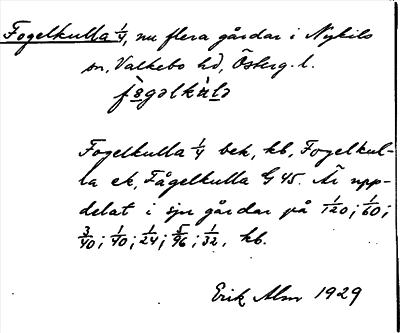 Fogelkulla 1/4, nu flera gårdar i Nykils
sn, Valkebo hd, Österg. l.
fògəlkùlə
Fogelkulla 1/4 bek, kb, Fogelkul-
la ek, Fågelkulla G 45. Är upp-
delat i sju gårdar på 1/120; 1/60;
3/40; 1/40; 1/24; 5/96; 1/32, kb.
Erik Alm 1929